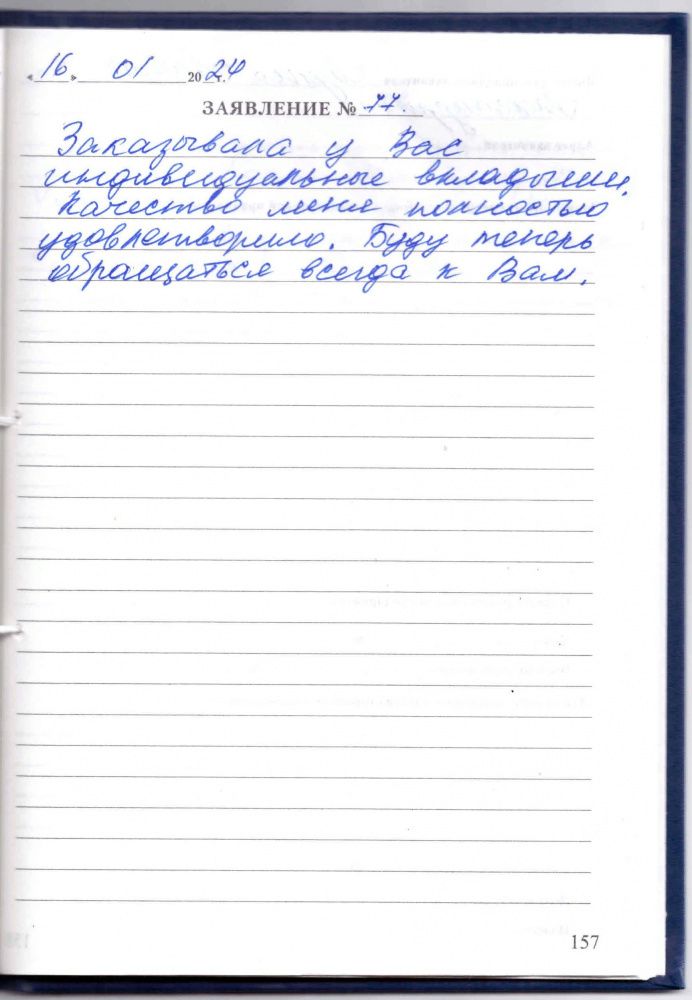 «16» 01 2024 г.
ЗАЯВЛЕНИЕ № 77.
Заказывала у Вас
индивидуальные вкладыши.
Качество меня полностью
удовлетворило. Буду теперь
обращаться всегда к Вам.
157